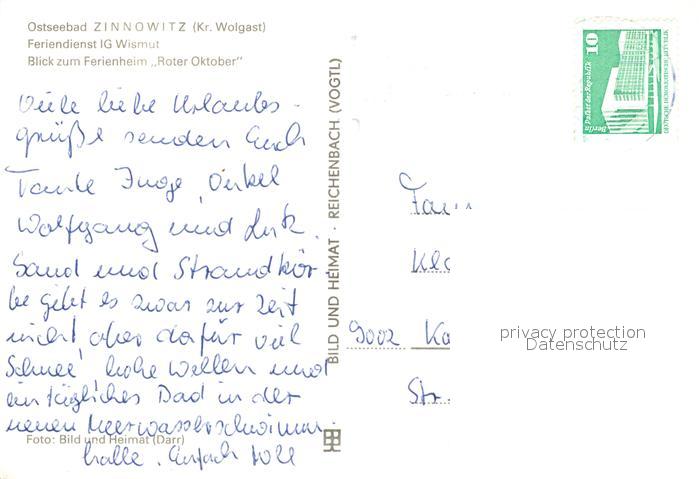 Ostseebad ZINNOWITZ (Kr. Wolgast)
Feriendienst IG Wismut
Blick zum Ferienheim „Roter Oktober"
Viele liebe Urlaubs-
grüße senden Euch
Tante Inge, Onkel
Wolfgang und Lutz.
Sand und Strandkör-
be gibt es zwar zur Zeit
nicht, aber dafür viel
Schnee, hohe Wellen und
ein tägliches Bad in der
neuen Meerwasserschwimm-
halle. Einfach toll
Foto: Bild und Heimat (Darr)
BILD UND HEIMAT · REICHENBACH (VOGTL)
10
Berlin Palast der Republik
DEUTSCHE DEMOKRATISCHE REPUBLIK
Fam
9002 Ka
Str.
privacy protection
Datenschutz